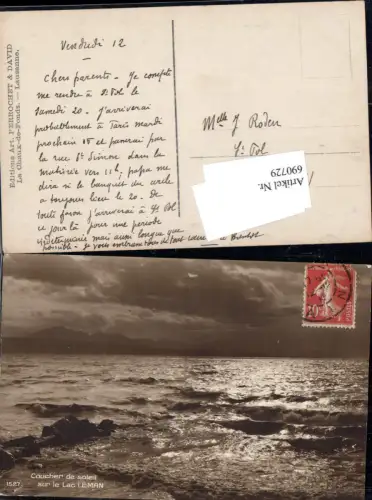 Editions Art. PERROCHET & DAVID
La Chaux-de-Fonds. — Lausanne.
Vendredi 12
Chers parents. Je compte
me rendre à St Pol le
samedi 20. J'arriverai
probablement à Paris mardi
prochain 16 et passerai par
la rue St Simon dans la
matinée vers 11h, papa me
dira si le banquet du cercle
a toujours lieu le 20. De
toute façon j'arriverai à St Pol
ce jour là pour une période
mais aussi longue que
possible. Je vous embrasse tous de tout cœur
Melle J Roden
St Pol
Artikel Nr.
690729
1527
Coucher de soleil
sur le Lac LEMAN